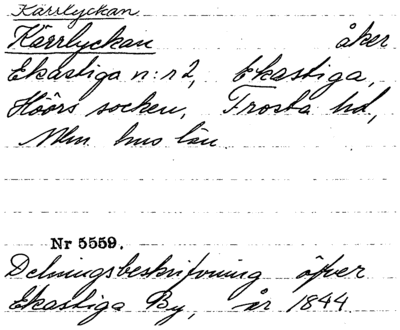 Kärrlyckan
Kärrlyckan åker
Ekastiga n:r 2, Ekastiga,
Höörs socken, Frosta hd,
Mlm hus län
Nr 5559.
Delningsbeskrifvning öfver
Ekastiga By, år 1844